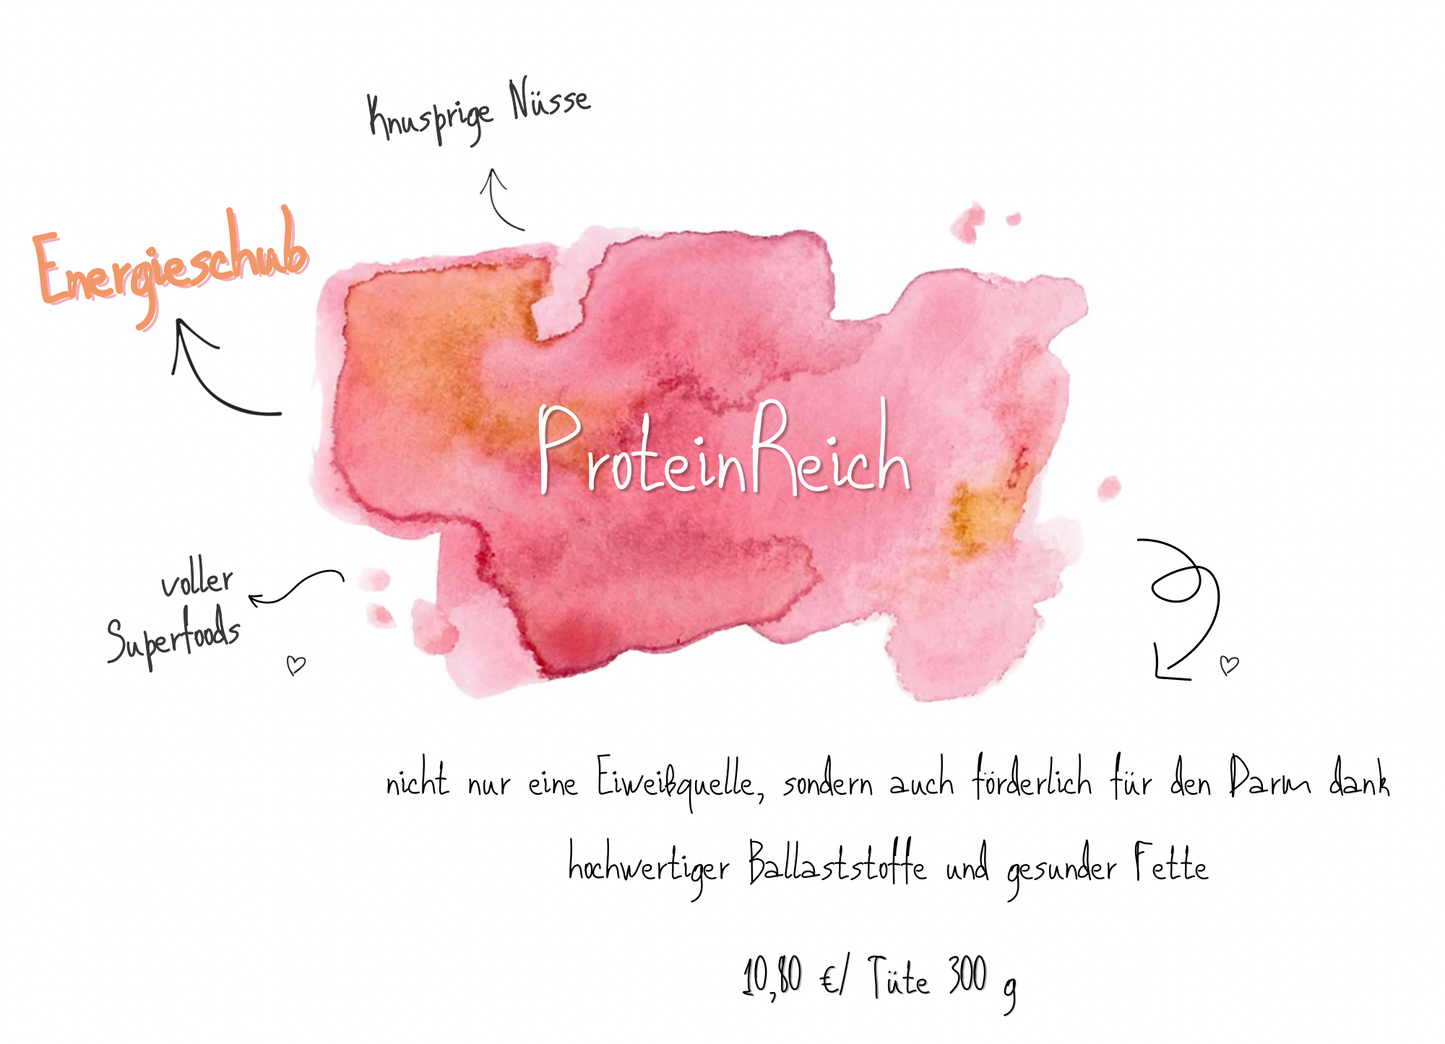 Knusprige Nüsse
Energieschub
ProteinReich
voller
Superfoods
nicht nur eine Eiweißquelle, sondern auch förderlich für den Darm dank
hochwertiger Ballaststoffe und gesunder Fette
10,80 €/ Tüte 300 g